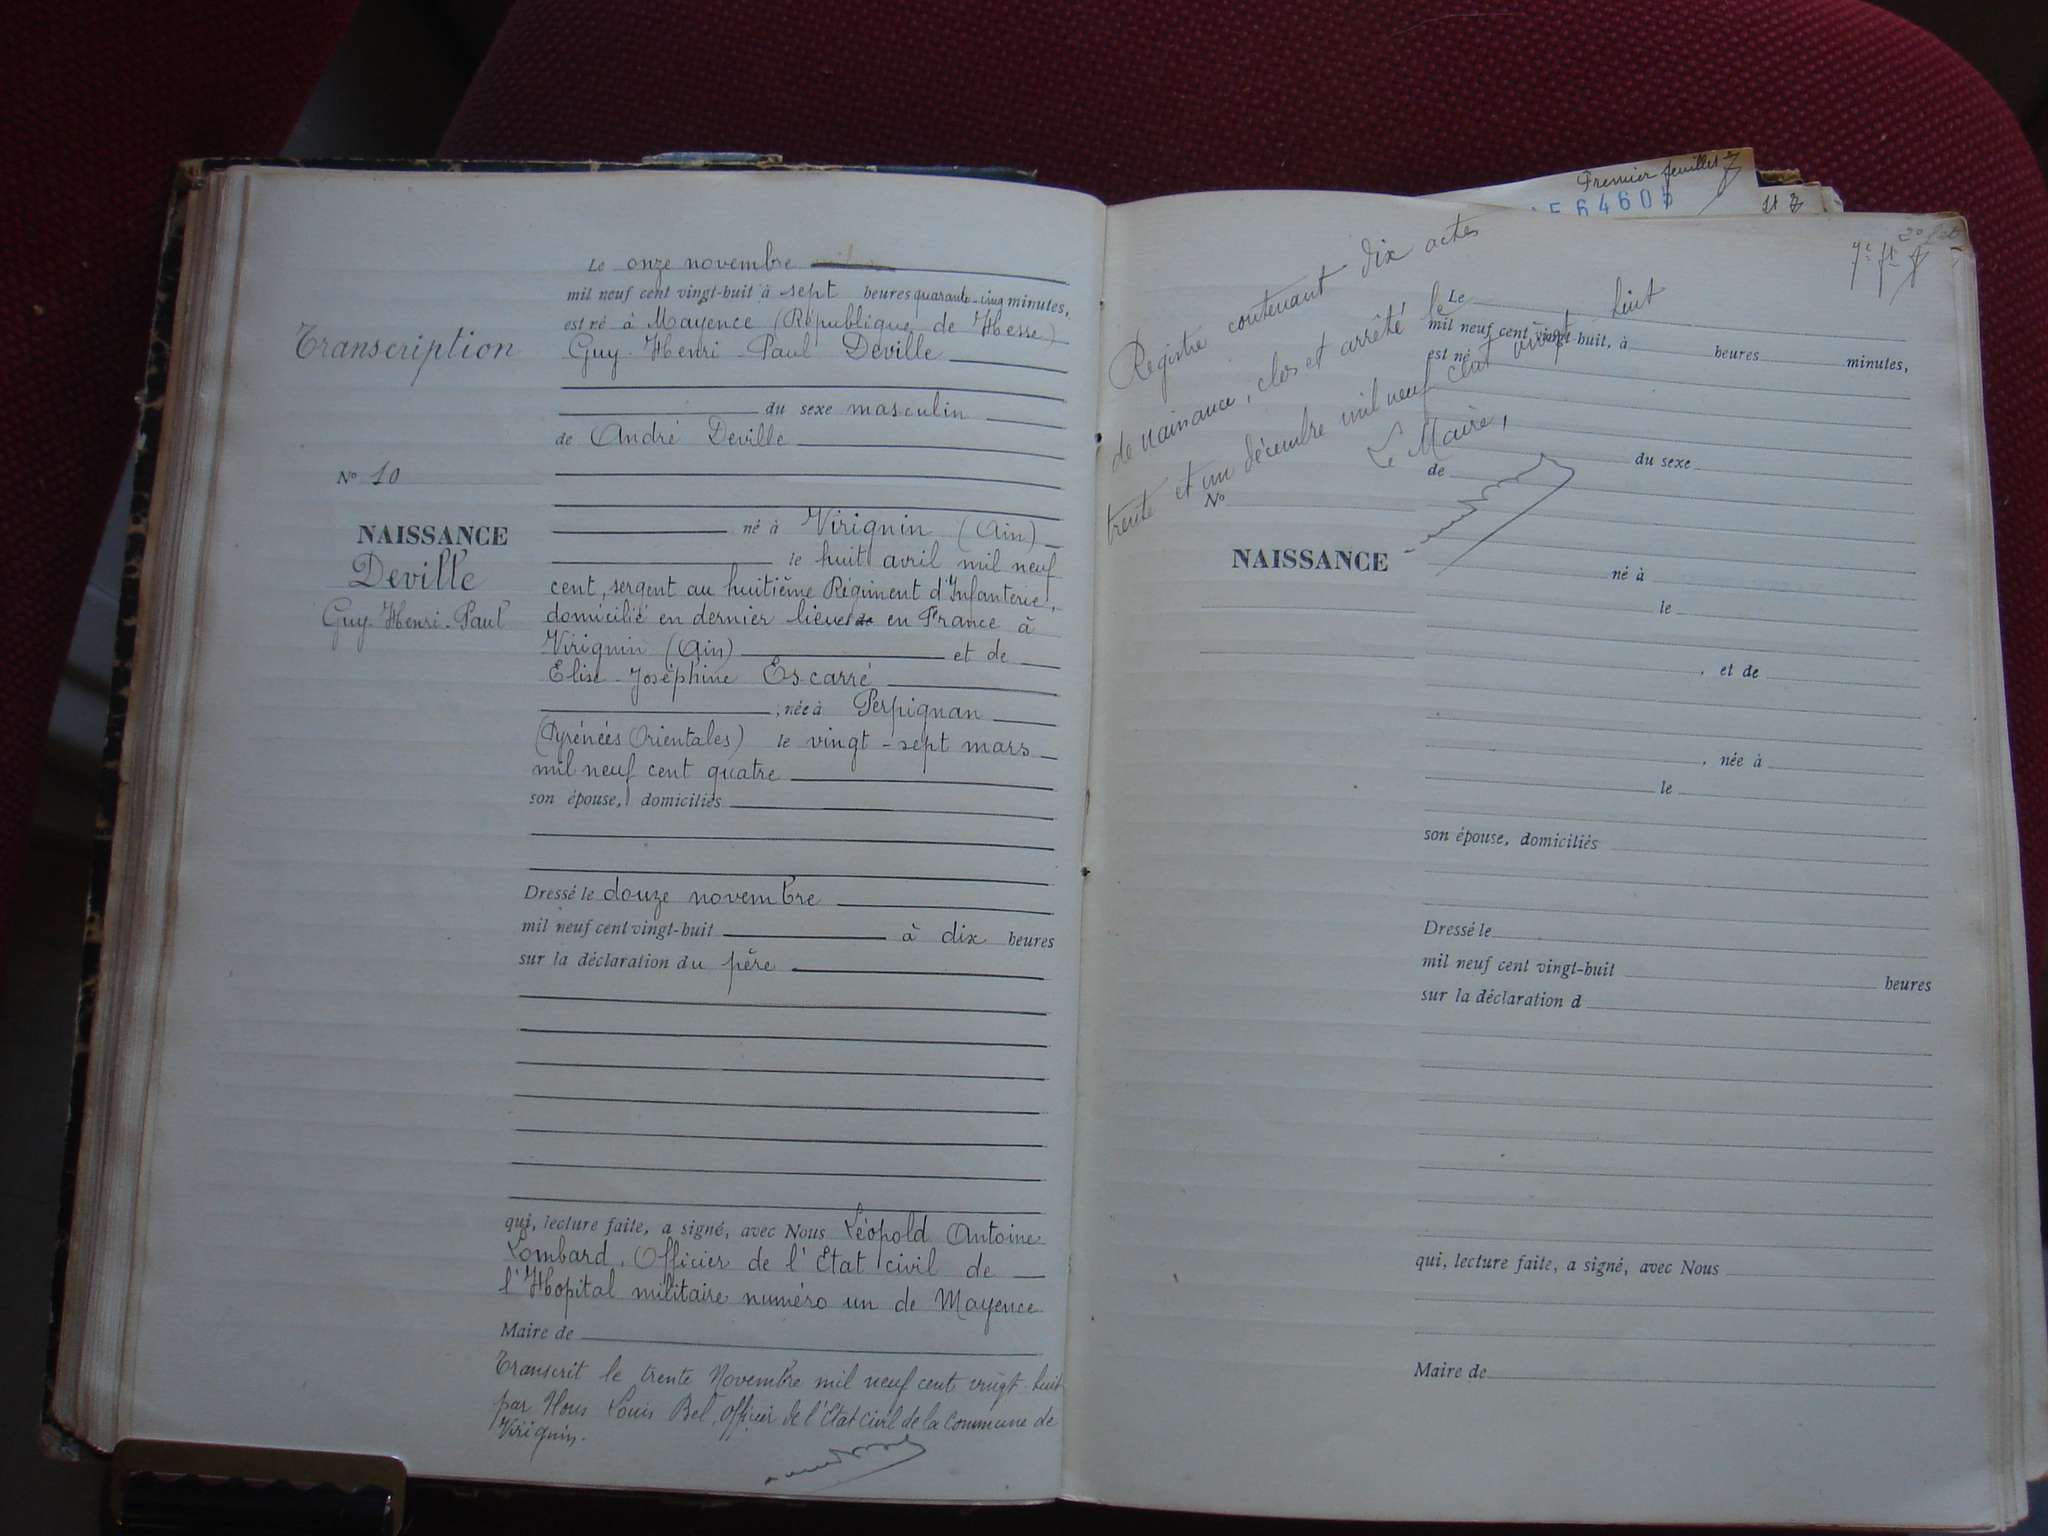 Transcription
N° 10
NAISSANCE
Deville
Guy-Henri-Paul
Le onze novembre
mil neuf cent vingt-huit à sept heures quarante-cinq minutes,
est né à Mayence (République de Hesse)
Guy-Henri-Paul Deville
du sexe masculin
de André Deville
né à Virignin (Ain)
le huit avril mil neuf
cent, sergent au huitième Régiment d'Infanterie,
domicilié en dernier lieu en France à
Virignin (Ain) et de
Elise-Joséphine Escarré
, née à Perpignan
(Pyrénées Orientales) le vingt-sept mars
mil neuf cent quatre
son épouse, domiciliés
Dressé le douze novembre
mil neuf cent vingt-huit à dix heures
sur la déclaration du père
qui, lecture faite, a signé, avec Nous Léopold Antoine
Lombard, Officier de l'Etat civil de
l'Hopital militaire numéro un de Mayence
Maire de
Transcrit le trente Novembre mil neuf cent vingt-huit
par Nous Louis Bel, officier de l'Etat civil de la commune de
Virignin.
Premier feuillet
64605
Registre contenant dix actes
de naissance, clos et arrêté le
trente et un décembre mil neuf cent vingt huit
Le Maire,
N°
NAISSANCE
Le
mil neuf cent vingt-huit, à heures minutes,
est né
du sexe
de
né à
le
, et de
, née à
le
son épouse, domiciliés
Dressé le
mil neuf cent vingt-huit heures
sur la déclaration d
qui, lecture faite, a signé, avec Nous
Maire de